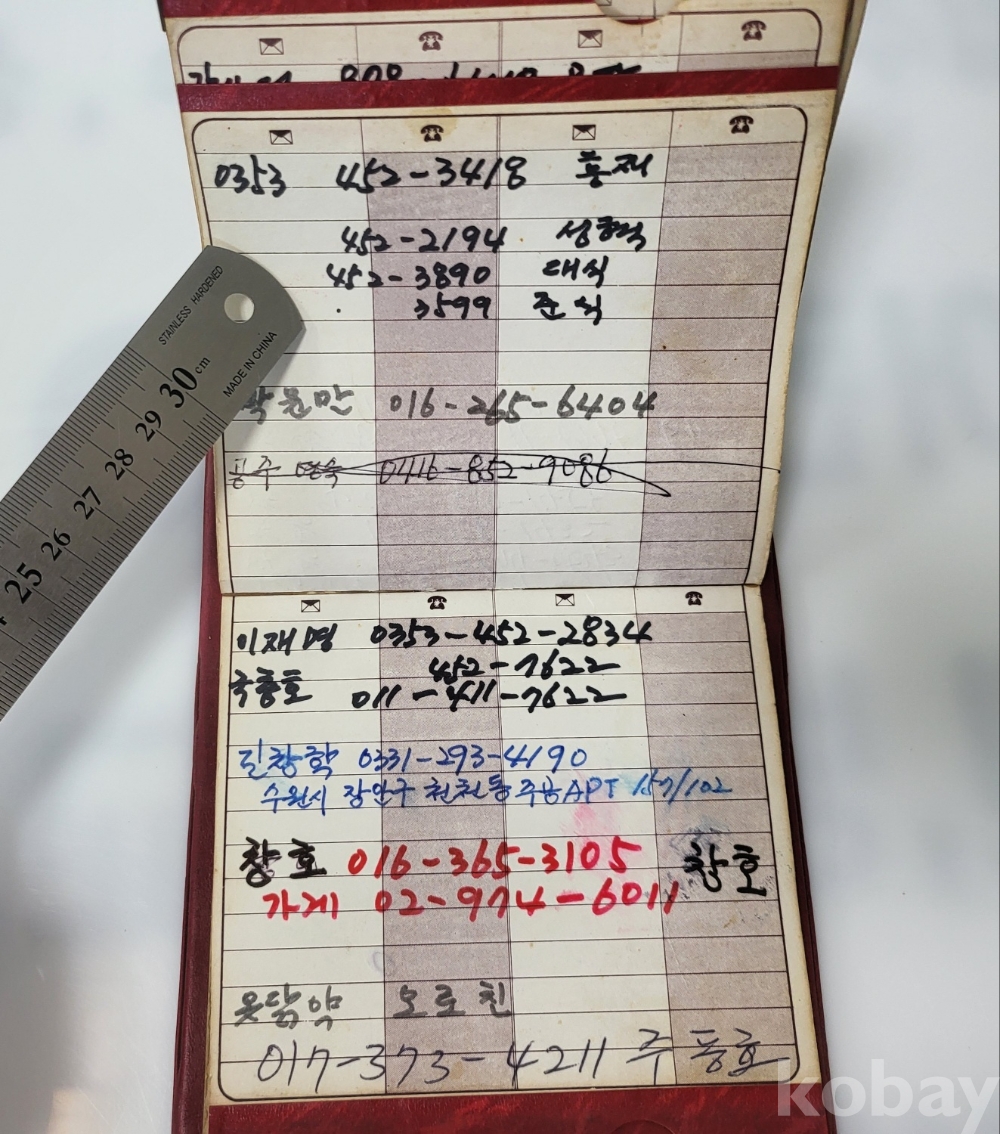 0353 452-3418 흥재
452-2194 성혁
452-3890 대식
3599 준식
윤만 016-265-6404
공주 0416-852-9086
이재명 0353-452-2834
452-7622
국흥호 011-411-7622
길창학 0331-293-4190
수원시 장안구 천천동 주공APT 157/102
창호 016-365-3105 창호
가게 02-974-6011
옻담약 노로친
017-373-4211 주흥호
STAINLESS HARDENED
MADE IN CHINA
25 26 27 28 29 30cm
kobay